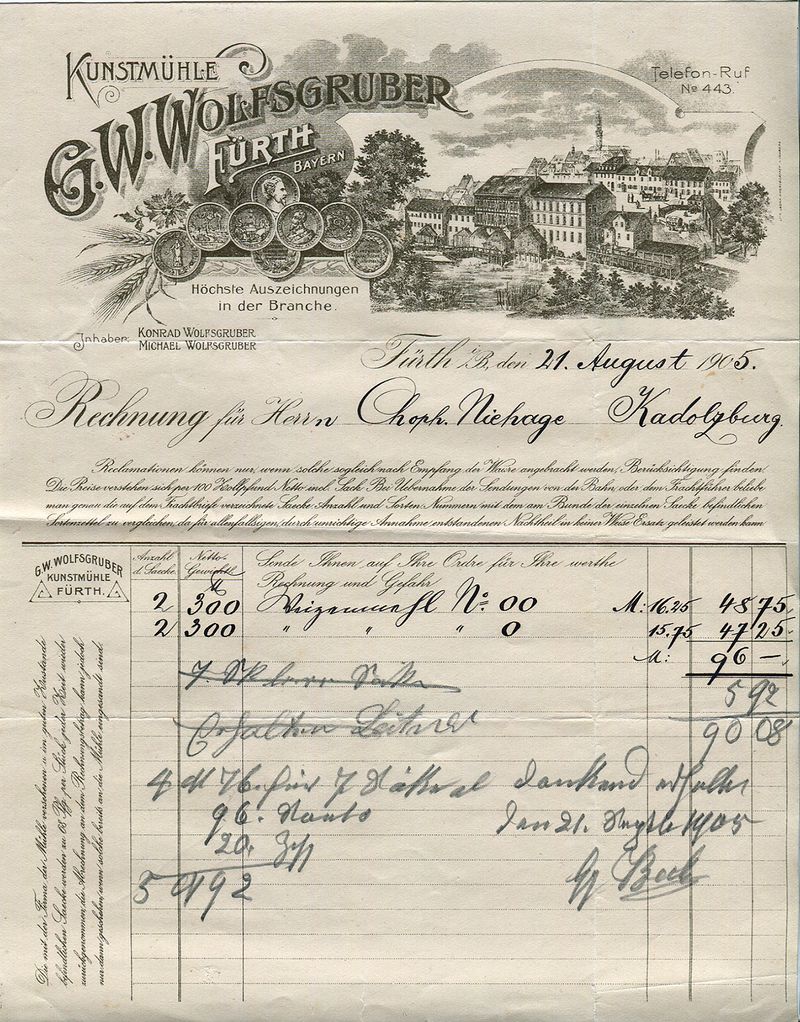 KUNSTMÜHLE
G.W. WOLFSGRUBER
FÜRTH
BAYERN
Telefon-Ruf
No 443.
Höchste Auszeichnungen
in der Branche.
Inhaber: KONRAD WOLFSGRUBER
MICHAEL WOLFSGRUBER
Fürth i/B, den 21. August 1905.
Rechnung für Herrn Choph. Niehage Kadolzburg.
Reclamationen können nur, wenn solche sogleich nach Empfang der Waare angebracht werden, Berücksichtigung finden.
Die Preise verstehen sich per 100 Zollpfund Netto incl. Sack. Bei Uebernahme der Sendungen von der Bahn, oder dem Frachtführer beliebe
man genau die auf dem Frachtbriefe verzeichnete Saecke Anzahl und Sorten Nummern mit dem am Bunde der einzelnen Saecke befindlichen
Sortenzettel zu vergleichen, da für allenfallsigen, durch unrichtige Annahme entstandenen Nachtheil in keiner Weise Ersatz geleistet werden kann
G.W. WOLFSGRUBER
KUNSTMÜHLE
FÜRTH.
Anzahl
d. Saecke.
Netto-
Gewicht
Sende Ihnen auf Ihre Ordre für Ihre werthe
Rechnung und Gefahr
2 300 Weizenmehl No 00 M: 16.25 48 75.
2 300 " " " 0 15.75 47 25.
M: 96 —
5 92
90 08
4 M 76. für 7 Säcke dankend erhalten
96. Skonto den 21. 1905
20.
5 M 92
Die mit der Firma der Mühle versehenen u. im guten Zustande
befindlichen Saecke werden zu 68 Pfg. per Stück guter Zeit wieder
zurückgenommen, die Abrechnung an den Rechnungsbetrag kann jedoch
nur dann geschehen, wenn solche bereits an die Mühle eingesandt sind.